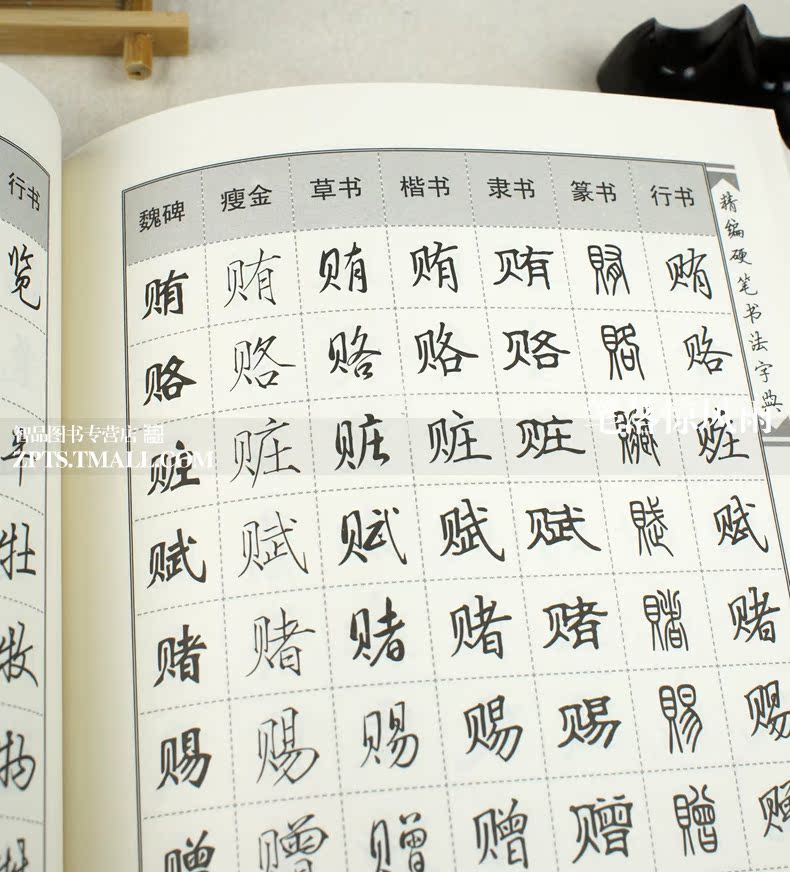 行书
览
牛
牡
牧
物
魏碑 瘦金 草书 楷书 隶书 篆书 行书
贿 贿 贿 贿 贿 贿 贿
赂 赂 赂 赂 赂 赂 赂
赃 赃 赃 赃 赃 贜 赃
赋 赋 赋 赋 赋 賦 赋
赌 赌 赌 赌 赌 賭 赌
赐 赐 赐 赐 赐 賜 赐
赠 赠 赠 赠 赠 贈 赠
精编硬笔书法字典
智品图书专营店
ZPTS.TMALL.COM
笔落惊风雨